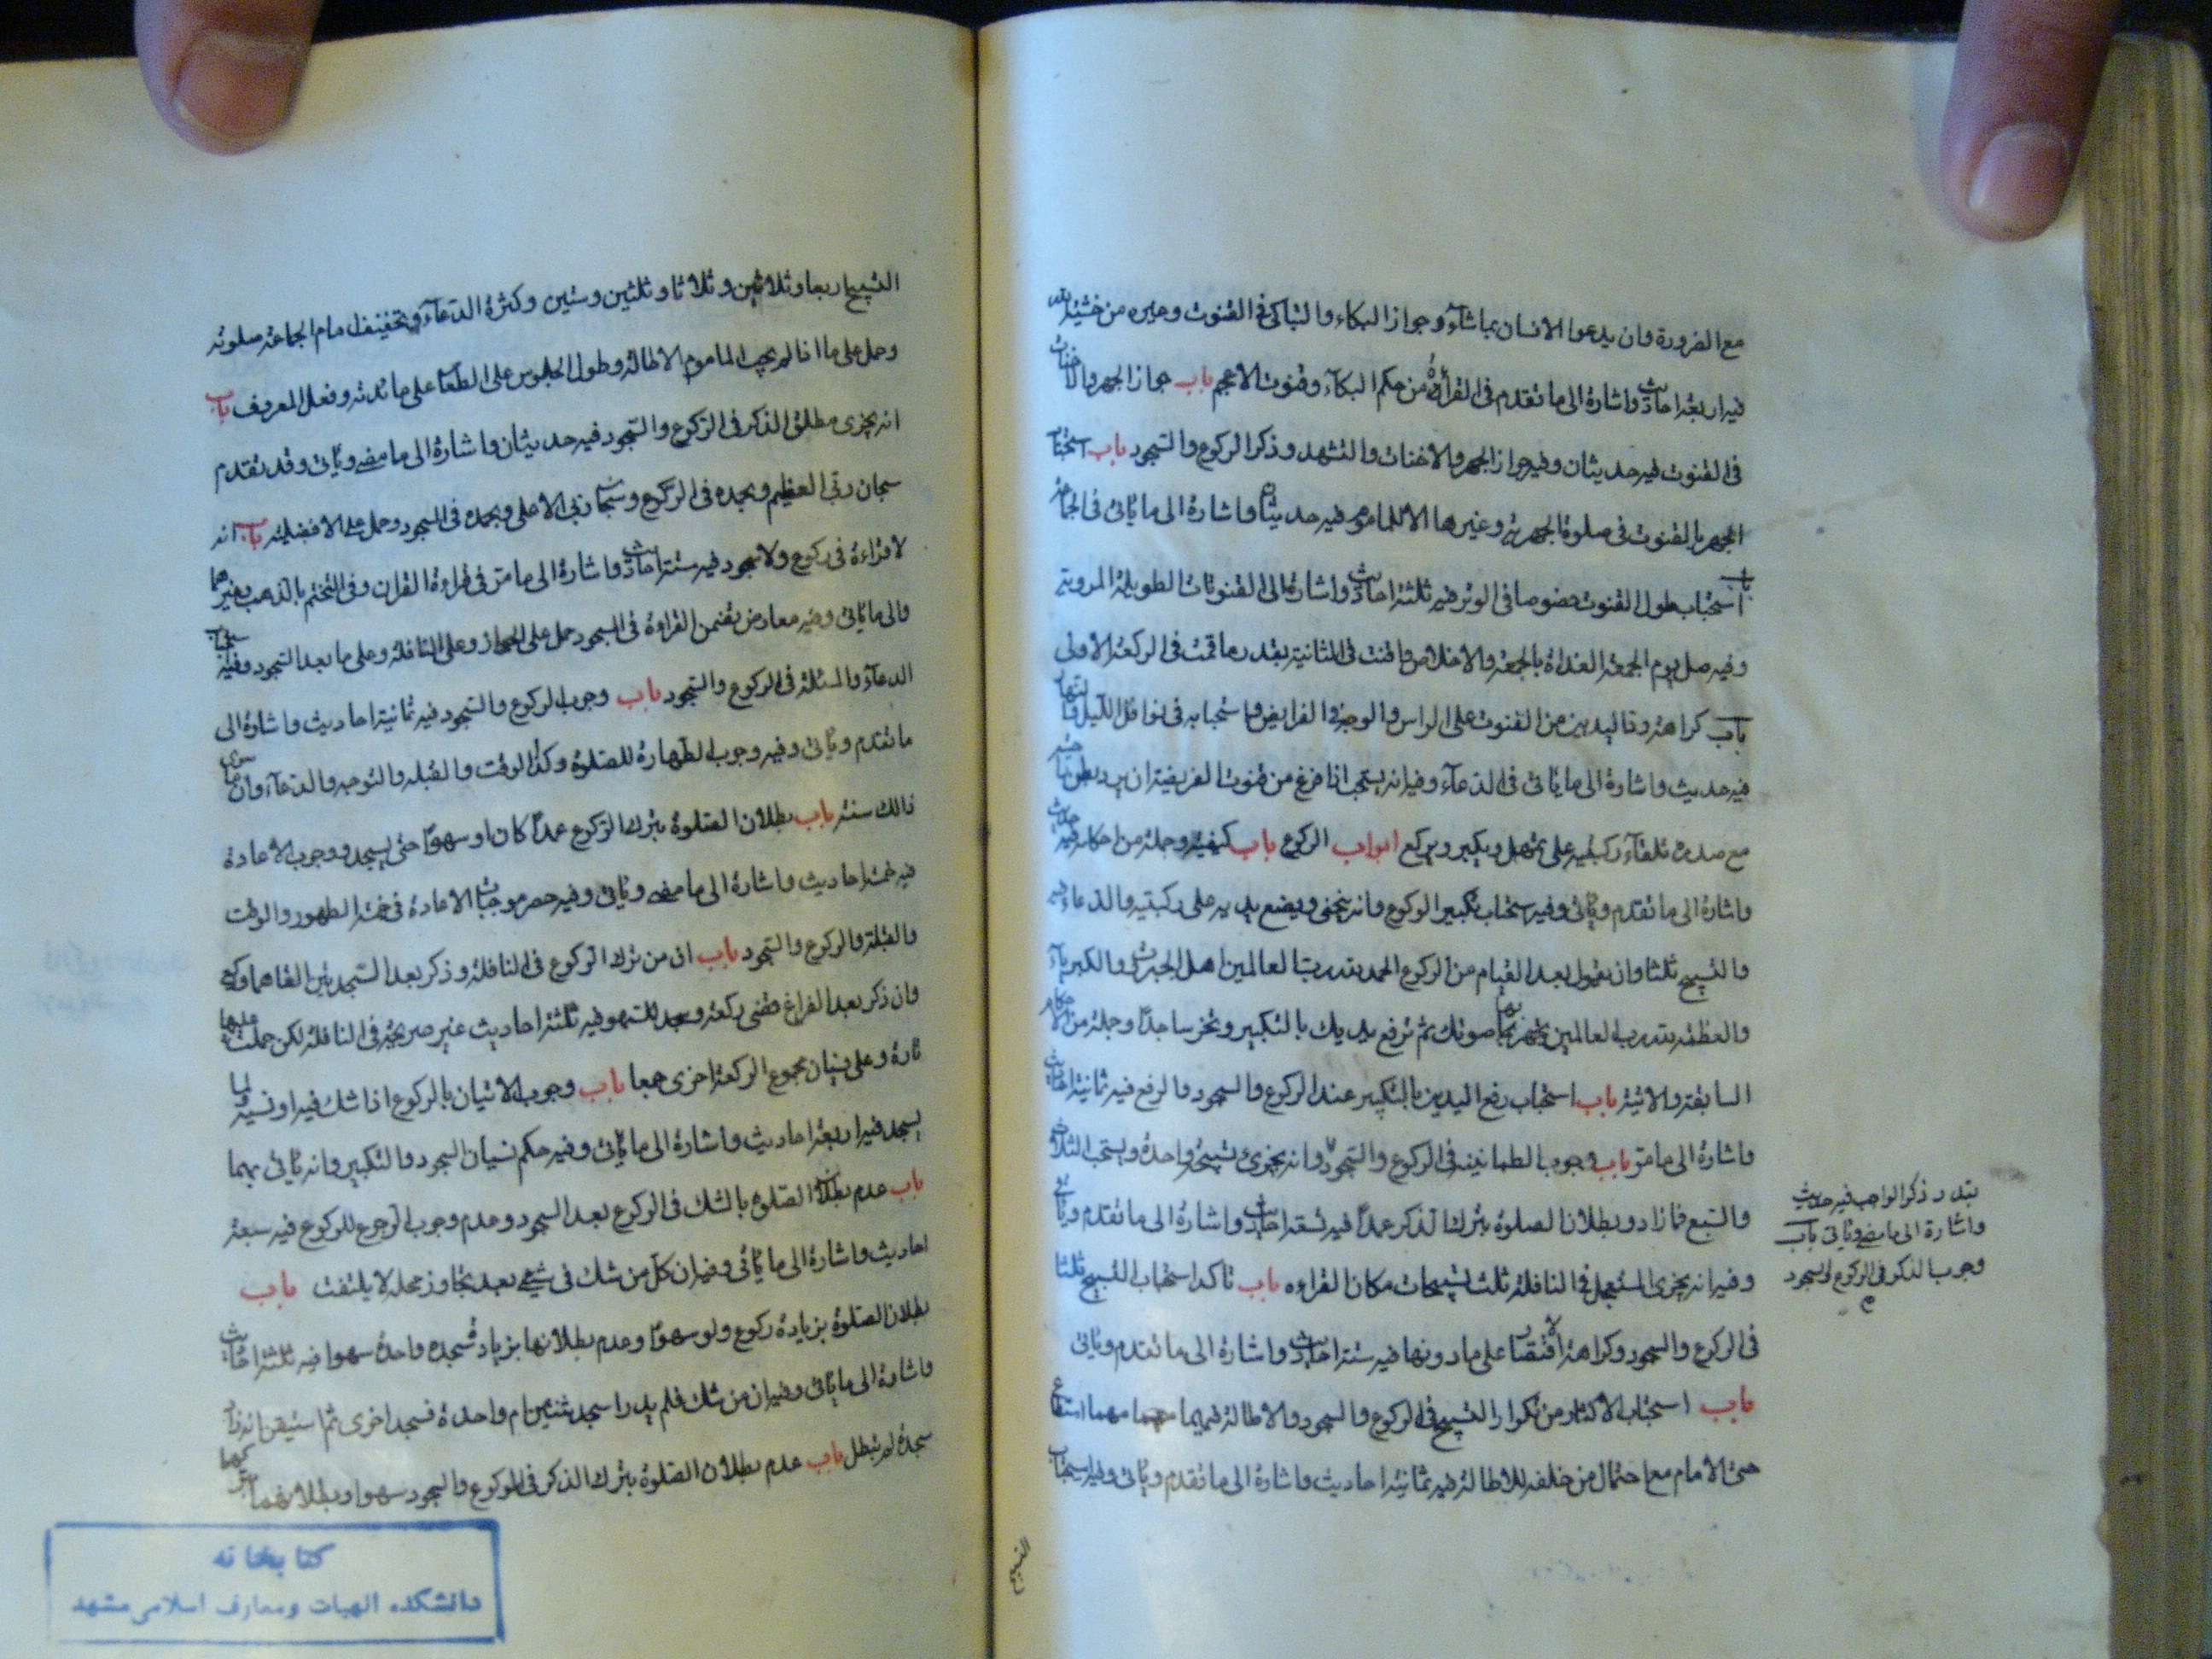 مع الضرورة وان يدعوا الانسان بماشاء وجواز البكاء والتباكى فى القنوت وغيره من خشية الله
فيه اربعة احاديث واشارة الى ما تقدم فى القراءة من حكم البكاء وقنوت الاعجم باب جواز الجهر والاخفات
فى القنوت فيه حديثان وفيه جواز الجهر والاخفات والتشهد وذكر الركوع والسجود باب استحباب
الجهر بالقنوت فى صلوة الجهرية وغيرها الا للماموم فيه حديث واشارة الى ما ياتى فى الجماعة
باب استحباب طول القنوت خصوصا فى الوتر فيه ثلثة احاديث واشارة الى القنوتات الطويلة المروية
وفيه صل يوم الجمعة الغداة بالجمعة والاخلاص واقنت فى الثانية بقدر ما قمت فى الركعة الاولى
باب كراهة رد اليدين من القنوت على الراس والوجه فى الفرايض واستحبابه فى نوافل الليل والنهار
فيه حديث واشارة الى ما ياتى فى الدعاء وفيه انه يستحب اذا فرغ من قنوت الفريضة ان يرد بطن راحتيه
مع صدره تلقاء ركبتيه على تمهل ويكبر ويركع ابواب الركوع باب كيفيته وجملة من احكامه فيه حديث
واشارة الى ما تقدم وياتى وفيه استحباب تكبير الركوع وانه ينحنى ويضع يديه على ركبتيه والدعاء فيه
والتسبيح ثلثا وان يقول بعد القيام من الركوع الحمد لله رب العالمين اهل الجبروت والكبرياء
والعظمة لله رب العالمين تجهر بها صوتك ثم ترفع يديك بالتكبير وتخر ساجدا وجملة من الاحكام
السابقة والاتية باب استحباب رفع اليدين بالتكبير عند الركوع والسجود والرفع فيه ثمانية احاديث
واشارة الى ما مر باب وجوب الطمانينة فى الركوع والسجود وانه يجزى تسبيحة واحدة ويستحب الثلاث
والسبع فما زاد وبطلان الصلوة بترك الذكر عمدا فيه تسعة احاديث واشارة الى ما تقدم وياتى
وفيه انه يجزى المستعجل فى النافلة ثلث تسبيحات مكان القراءه باب تاكد استحباب التسبيح ثلثا
فى الركوع والسجود وكراهة الاقتصار على ما دونها فيه ستة احاديث واشارة الى ما تقدم وياتى
باب استحباب الاكثار من تكرار التسبيح فى الركوع والسجود والاطالة فيهما مهما استطاع
حتى الامام مع احتمال من خلفه للاطالة فيه ثمانية احاديث واشارة الى ما تقدم وياتى وفيه استحباب
بقدر ذكر الواجب فيه حديث
واشارة الى ما مضى وياتى باب
وجوب الذكر فى الركوع والسجود
التسبيح
التسبيح اربعا وثلاثين و ثلاثا وثلثين وستين وكثرة الدعاء وتخفيف امام الجماعة صلوته
وحمل على ما اذا لم يحب الماموم الاطالة وطول الجلوس على الطعام على مائدته وفعل المعروف باب
انه يجزى مطلق الذكر فى الركوع والسجود فيه حديثان واشارة الى ما مضى وياتى وقد تقدم
سبحان ربى العظيم وبحمده فى الركوع وسبحان ربى الاعلى وبحمده فى السجود وحمل على الافضلية باب انه
لا قراءة فى ركوع ولا سجود فيه ستة احاديث واشارة الى ما مر فى قراءة القران وفى التختم بالذهب وغيرهما
والى ما ياتى وفيه معارض تضمن القراءة فى السجود حمل على الجواز وعلى النافلة وعلى ما بعد السجود وفيه استحباب
الدعاء والمسئلة فى الركوع والسجود باب وجوب الركوع والسجود فيه ثمانية احاديث واشارة الى
ما تقدم وياتى وفيه وجوب الطهارة للصلوة وكذا الوقت والقبلة والتوجه والدعاء وان ما سوى
ذالك سنة باب بطلان الصلوة بترك الركوع عمدا كان او سهوا حتى يسجد ووجوب الاعادة
فيه خمسة احاديث واشارة الى ما مضى وياتى وفيه حصر موجبات الاعادة فى خمسة الطهور والوقت
والقبلة والركوع والسجود باب ان من ترك الركوع فى النافلة وذكر بعد السجدتين القاهما وركع
وان ذكر بعد الفراغ قضى ركعة وسجد للسهو فيه ثلثة احاديث غير صريحة فى النافلة لكن حملت عليها
تارة وعلى نسيان مجموع الركعة اخرى جمعا باب وجوب الاتيان بالركوع اذا شك فيه او نسيه ولما
يسجد فيه اربعة احاديث واشارة الى ما ياتى وفيه حكم نسيان السجود والتكبير وانه ياتى بهما
باب عدم بطلان الصلوة بالشك فى الركوع بعد السجود وعدم وجوب الرجوع للركوع فيه سبعة
احاديث واشارة الى ما ياتى وفيه ان كل من شك فى شىء بعد تجاوز محله لا يلتفت باب
بطلان الصلوة بزيادة ركوع ولو سهوا وعدم بطلانها بزيادة سجدة واحدة سهوا فيه ثلثة احاديث
واشارة الى ما ياتى وفيه ان من شك فلم يدر اسجد ثنتين ام واحدة فسجد اخرى ثم استيقن انه زاد
سجدة لم تبطل باب عدم بطلان الصلوة بترك الذكر فى الركوع والسجود سهوا وبطلانها بتركهما
كتابخانه
دانشكده الهيات ومعارف اسلامى مشهد